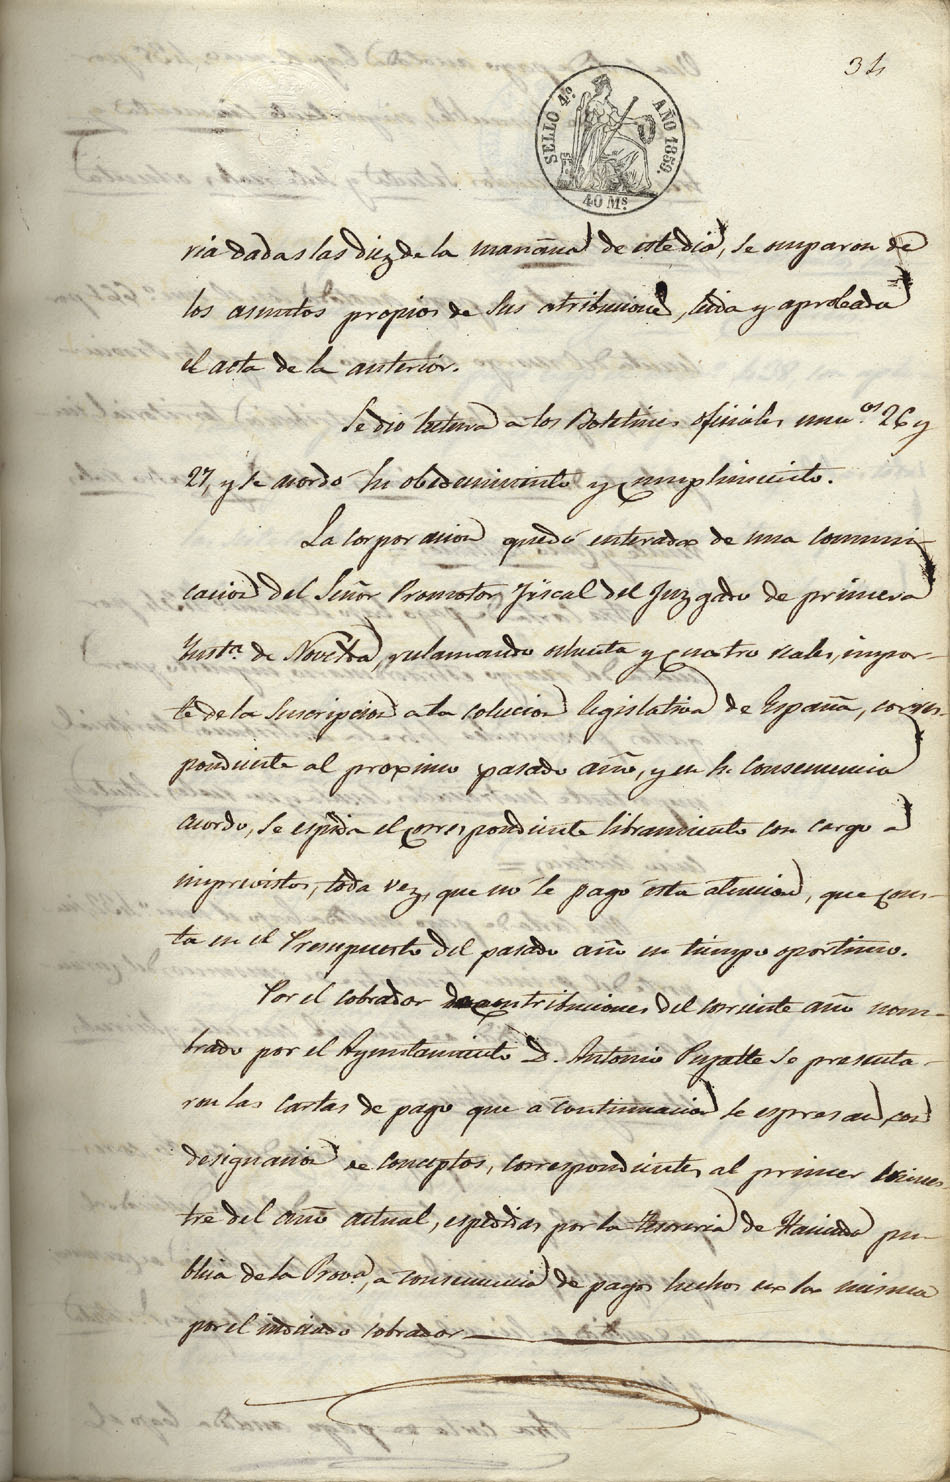 34
SELLO 4º AÑO 1859.
40 Ms
ria dadas las diez de la mañana de este dia, se ocuparon de
los asuntos propios de sus atribuciones, leida y aprobada
el acta de la anterior.
Se dió lectura a los Boletines oficiales numos 26 y
27, y se acordó su obedecimiento y cumplimiento.
La corporacion quedó enterada de una comuni-
cacion del Señor Promotor Fiscal del Juzgado de primera
Insta de Novelda, reclamando ochenta y cuatro reales, impor-
te de la suscripcion a la colecion legislativa de España, corres-
pondiente al proximo pasado año, y en su consecuencia
acordo, se espida el correspondiente libramiento con cargo a
imprevistos, toda vez, que no se pagó esta atencion, que cons-
ta en el Presupuesto del pasado año en tiempo oportuno.
Por el cobrador de contribuciones del corriente año nom-
brado por el Ayuntamiento D. Antonio Pujalte se presenta-
ron las cartas de pago que a continuacion se espresan con
designacion de conceptos, correspondientes al primer trimes-
tre del año actual, espedidas por la Tesoreria de Hacienda pu-
blica de la Prova, a consecuencia de pagos hechos en la misma
por el indicado cobrador